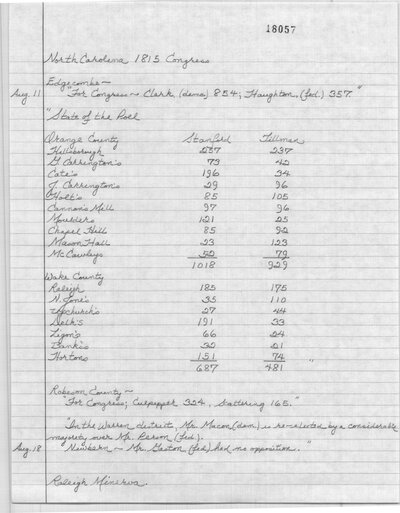 18057
North Carolina 1815 Congress
Edgecombe ~
Aug. 11 "For Congress ~ Clark, (demo) 854; Haughton, (fed.) 357"
"State of the Poll
Orange County Stanford Tillman
Hillsborough 237
G. Carrington's 73 42
Cate's 196 34
J. Carrington's 29 96
Holt's 85 105
Cannon's Mill 97 96
Moulder's 121 25
Chapel Hill 85 92
Mason Hall 23 123
McCawleys 52 79
1018 929
Wake County
Raleigh 185 175
N. Jone's 35 110
Upchurch's 27 44
Dolk's 191 33
Ligon's 66 24
Banks's 32 21
Hortons 151 74 "
687 481
Robeson County ~
"For Congress; Culpepper 324, Scattering 165."
"In the Warren district, Mr. Macon (dem) is re-elected by a considerable
majority over Mr. Person (fed).
Aug. 18 "Newbern ~ Mr. Gaston (fed) had no opposition."
Raleigh Minerva.